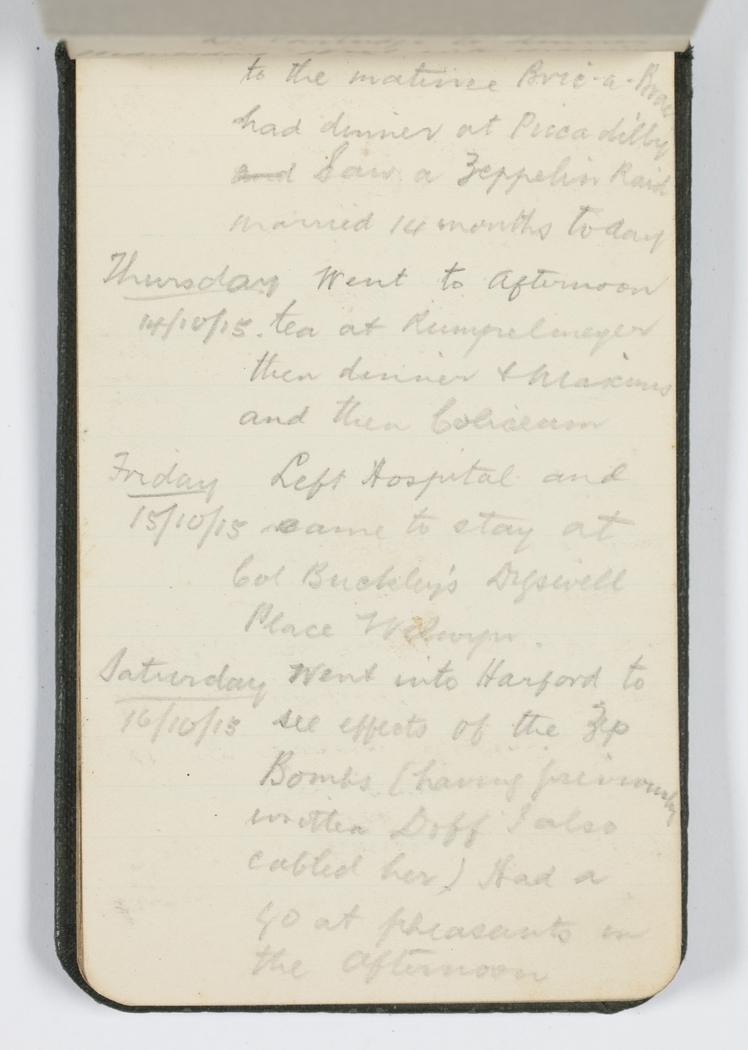 to the matinee Bric-a-Brac
had dinner at Piccadilly
and Saw a Zeppelin Raid
married 14 months today
Thursday Went to Afternoon
14/10/15. tea at Rumpelmeyer
then dinner & Maxims
and then Coliseum
Friday Left Hospital and
15/10/15 came to stay at
Col Buckley's Digswell
Place Welwyn.
Saturday Went into Harford to
16/10/15 see effects of the Zep
Bombs (having previously
written Doff I also
cabled her) Had a
go at pheasants in
the afternoon